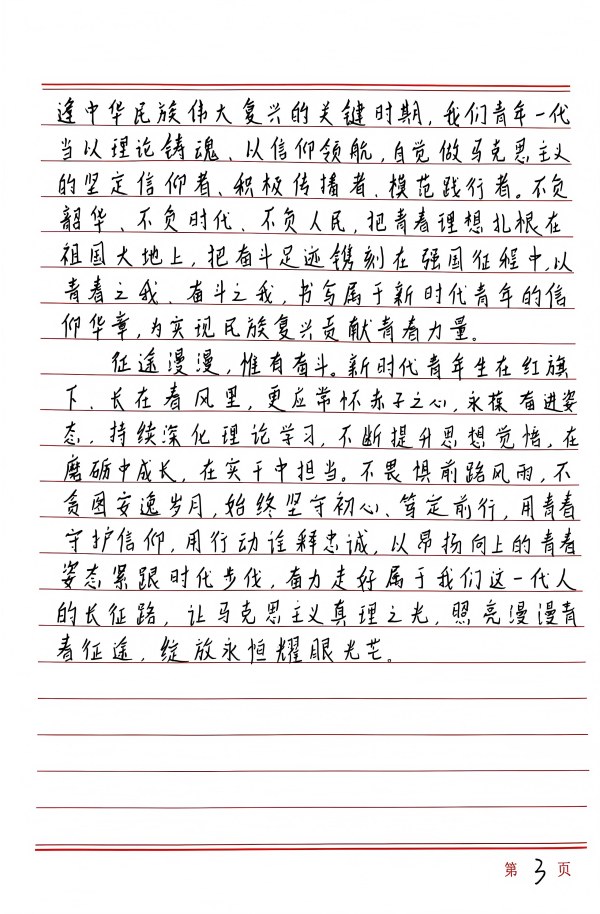 逢中华民族伟大复兴的关键时期，我们青年一代
当以理论铸魂、以信仰领航，自觉做马克思主义
的坚定信仰者、积极传播者、模范践行者。不负
韶华、不负时代、不负人民，把青春理想扎根在
祖国大地上，把奋斗足迹镌刻在强国征程中，以
青春之我、奋斗之我，书写属于新时代青年的信
仰华章，为实现民族复兴贡献青春力量。
征途漫漫，惟有奋斗。新时代青年生在红旗
下、长在春风里，更应常怀赤子之心，永葆奋进姿
态，持续深化理论学习，不断提升思想觉悟，在
磨砺中成长，在实干中担当。不畏惧前路风雨，不
贪图安逸岁月，始终坚守初心、笃定前行，用青春
守护信仰，用行动诠释忠诚，以昂扬向上的青春
姿态紧跟时代步伐，奋力走好属于我们这一代人
的长征路，让马克思主义真理之光，照亮漫漫青
春征途，绽放永恒耀眼光芒。
第 3 页